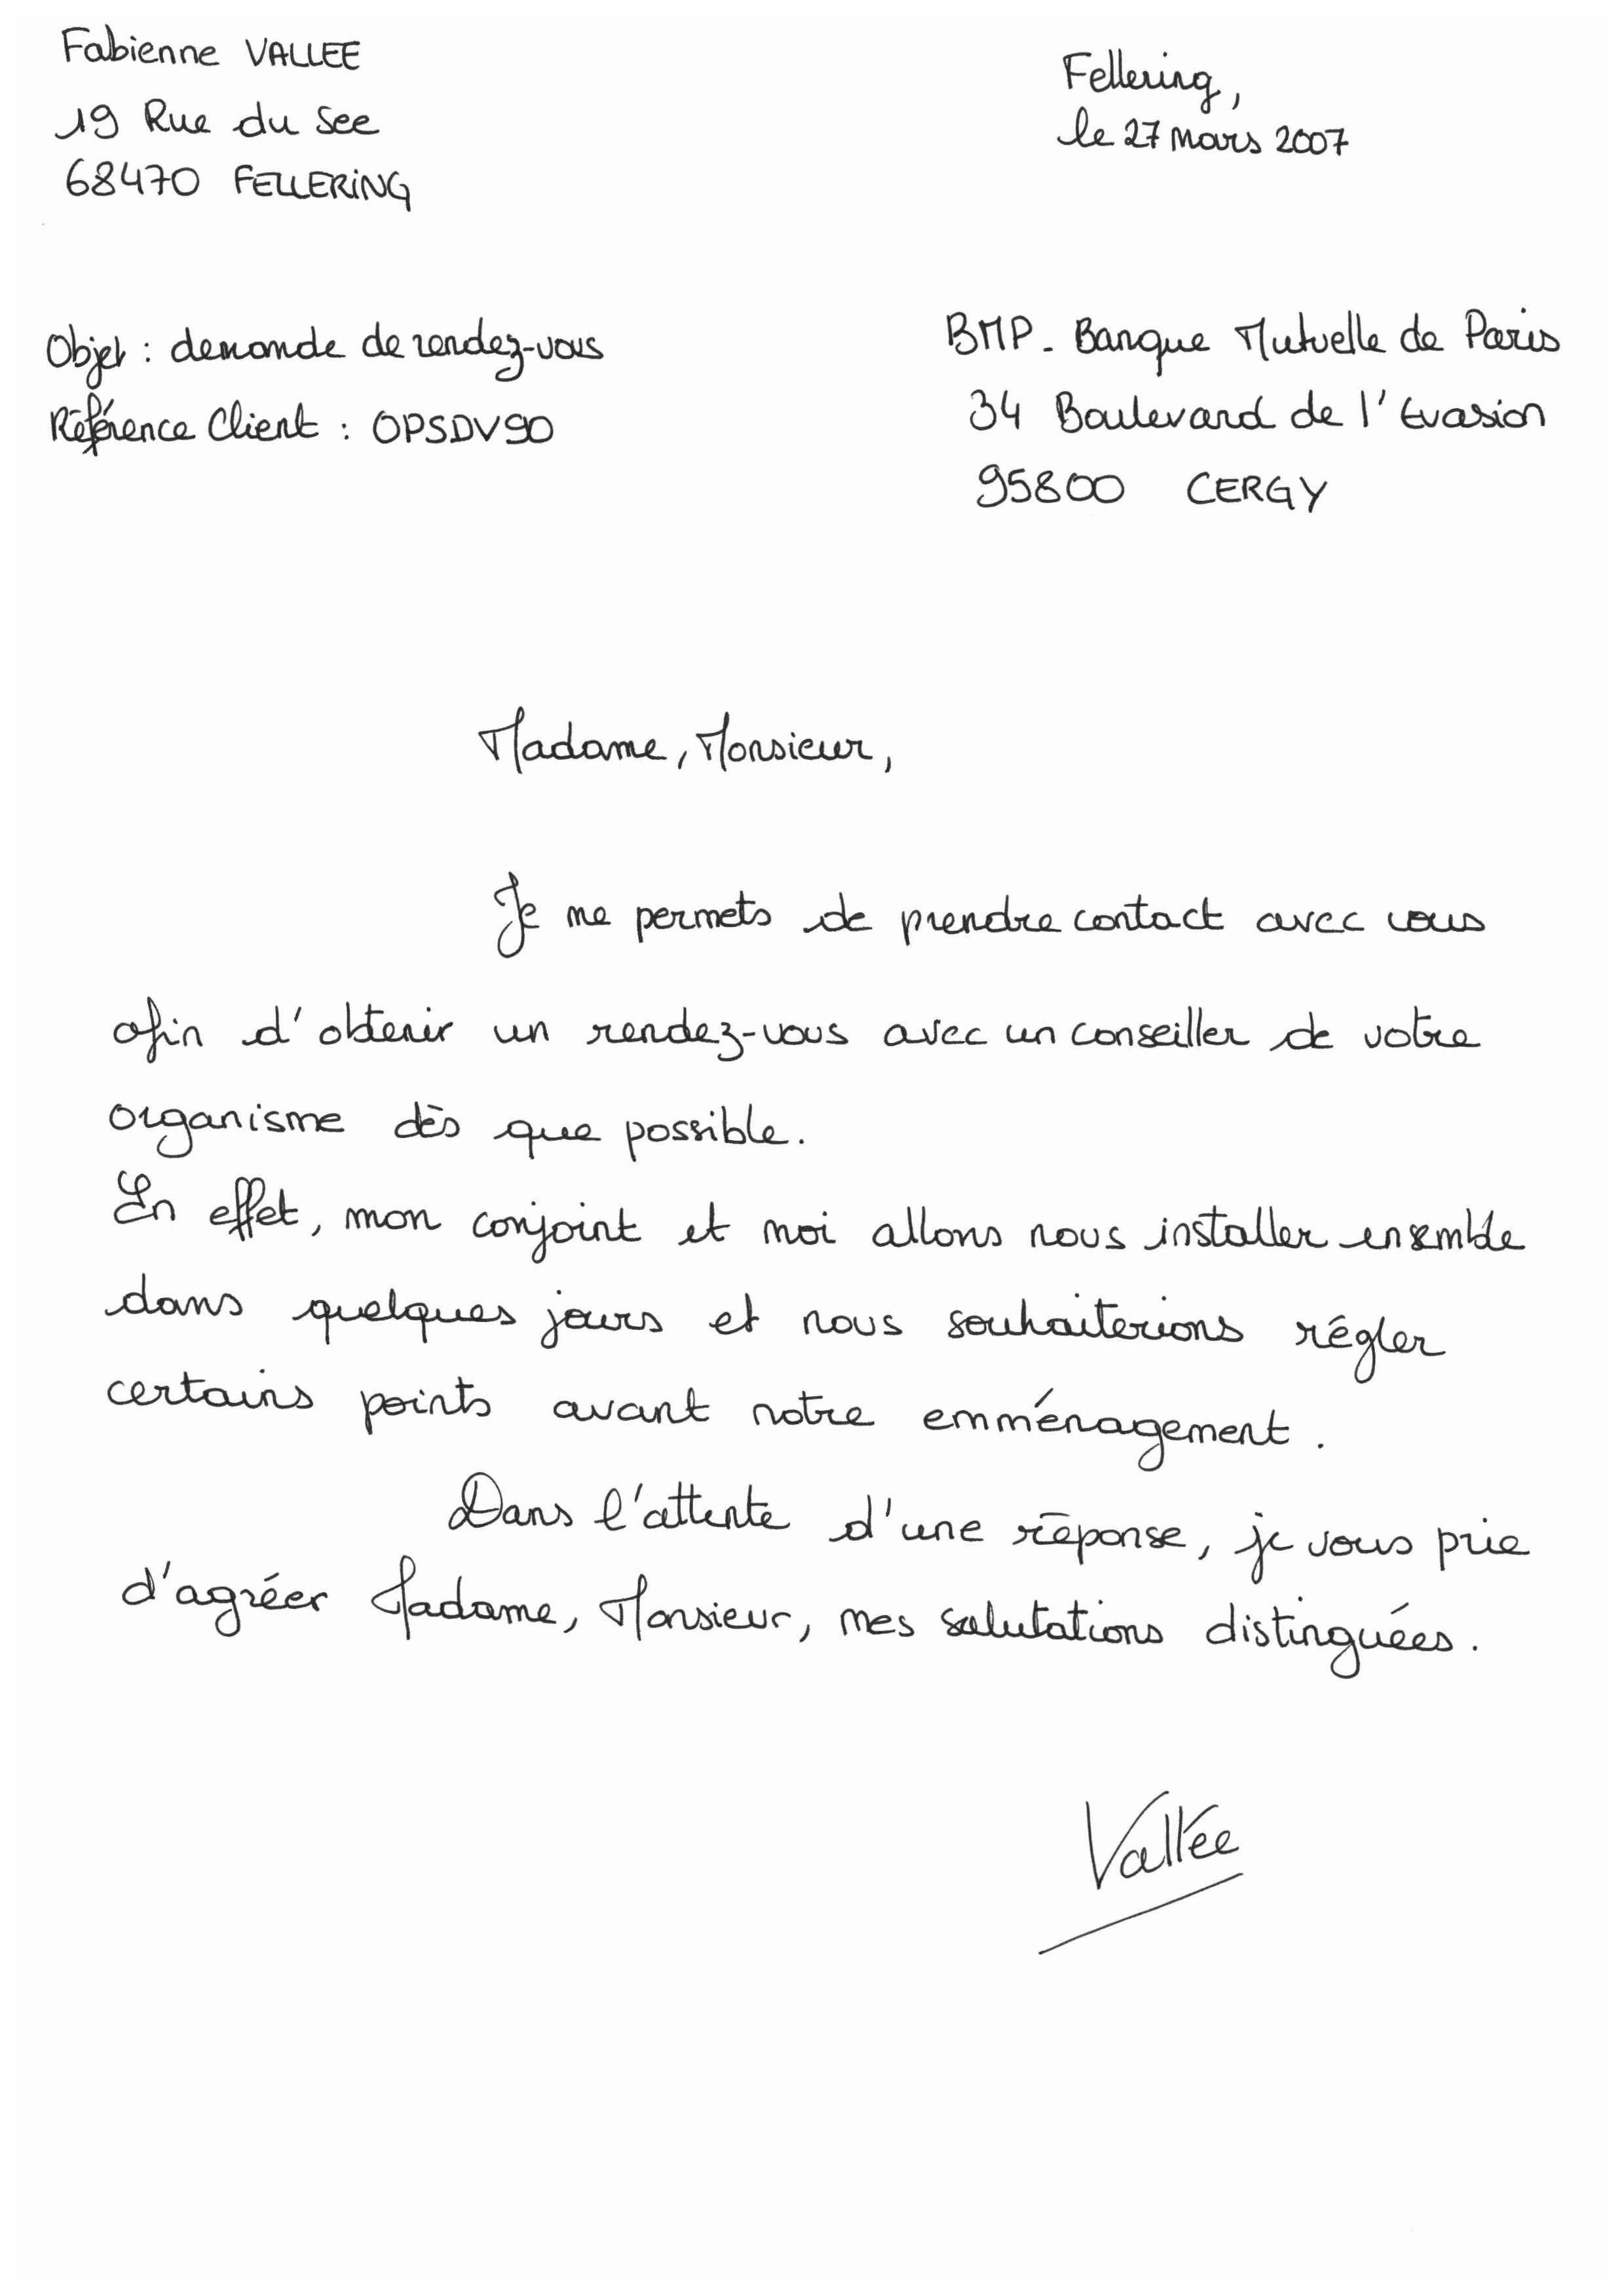 Fabienne VALLEE
19 Rue du See
68470 FELLERING
Fellering,
le 27 mars 2007
Objet : demande de rendez-vous
Référence Client : OPSDV90
BMP - Banque Mutuelle de Paris
34 Boulevard de l'Evasion
95800 CERGY
Madame, Monsieur,
Je me permets de prendre contact avec vous
afin d'obtenir un rendez-vous avec un conseiller de votre
organisme dès que possible.
En effet, mon conjoint et moi allons nous installer ensemble
dans quelques jours et nous souhaiterions régler
certains points avant notre emménagement.
Dans l'attente d'une réponse, je vous prie
d'agréer Madame, Monsieur, mes salutations distinguées.
Vallée